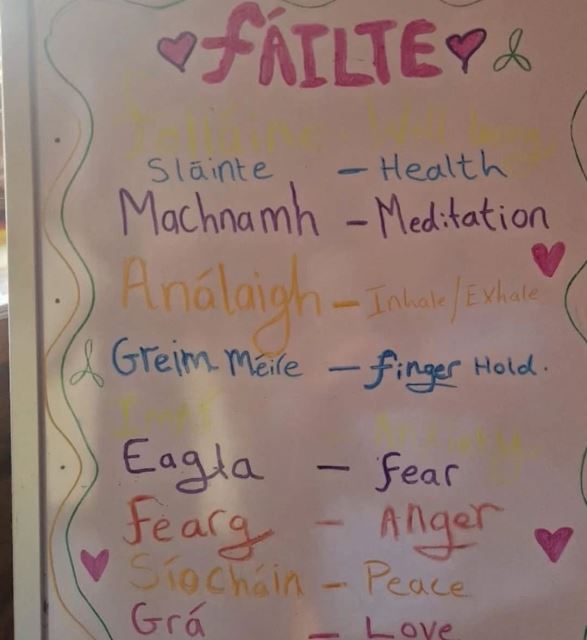 FÁILTE
Folláine - Well being
Sláinte - Health
Machnamh - Meditation
Análaigh - Inhale/Exhale
Greim Méire - finger Hold.
Imní - Anxiety
Eagla - fear
Fearg - Anger
Síocháin - Peace
Grá - Love